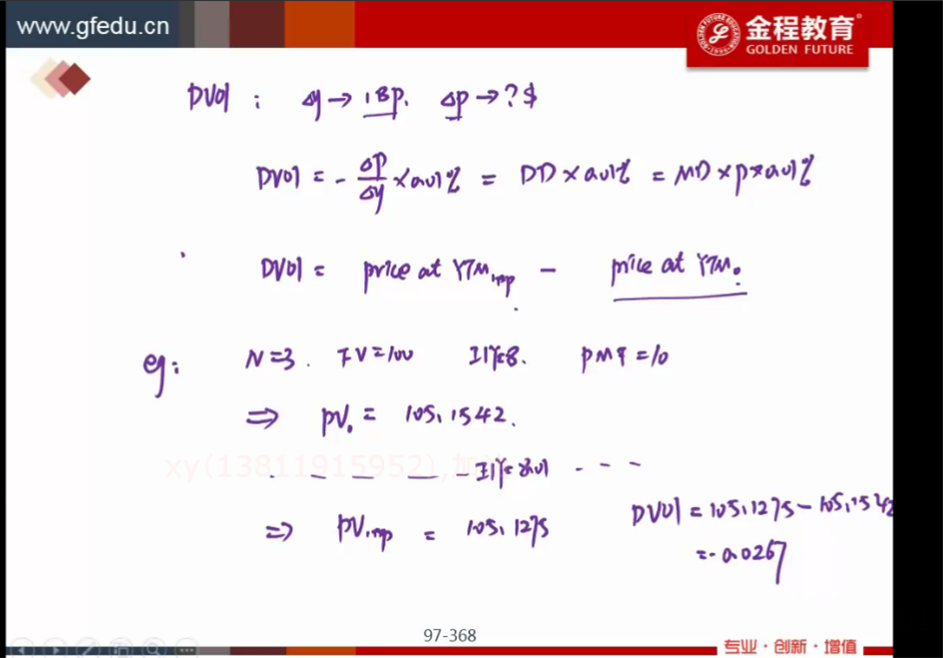 www.gfedu.cn
金程教育
GOLDEN FUTURE
DV01 : Δy → 1BP. ΔP → ? $
DV01 = - ΔP/Δy × 0.01% = DD × 0.01% = MD × P × 0.01%
DV01 = price at YTM₁bp - price at YTM₀
eg: N=3. FV=100 I/Y=8. PMT=10
⇒ PV₀ = 105.1542.
- - - - I/Y=8.01 - - -
xy(13811915952),
⇒ PV₁bp = 105.1275
DV01 = 105.1275 - 105.1542
= -0.0267
97-368
专业·创新·增值